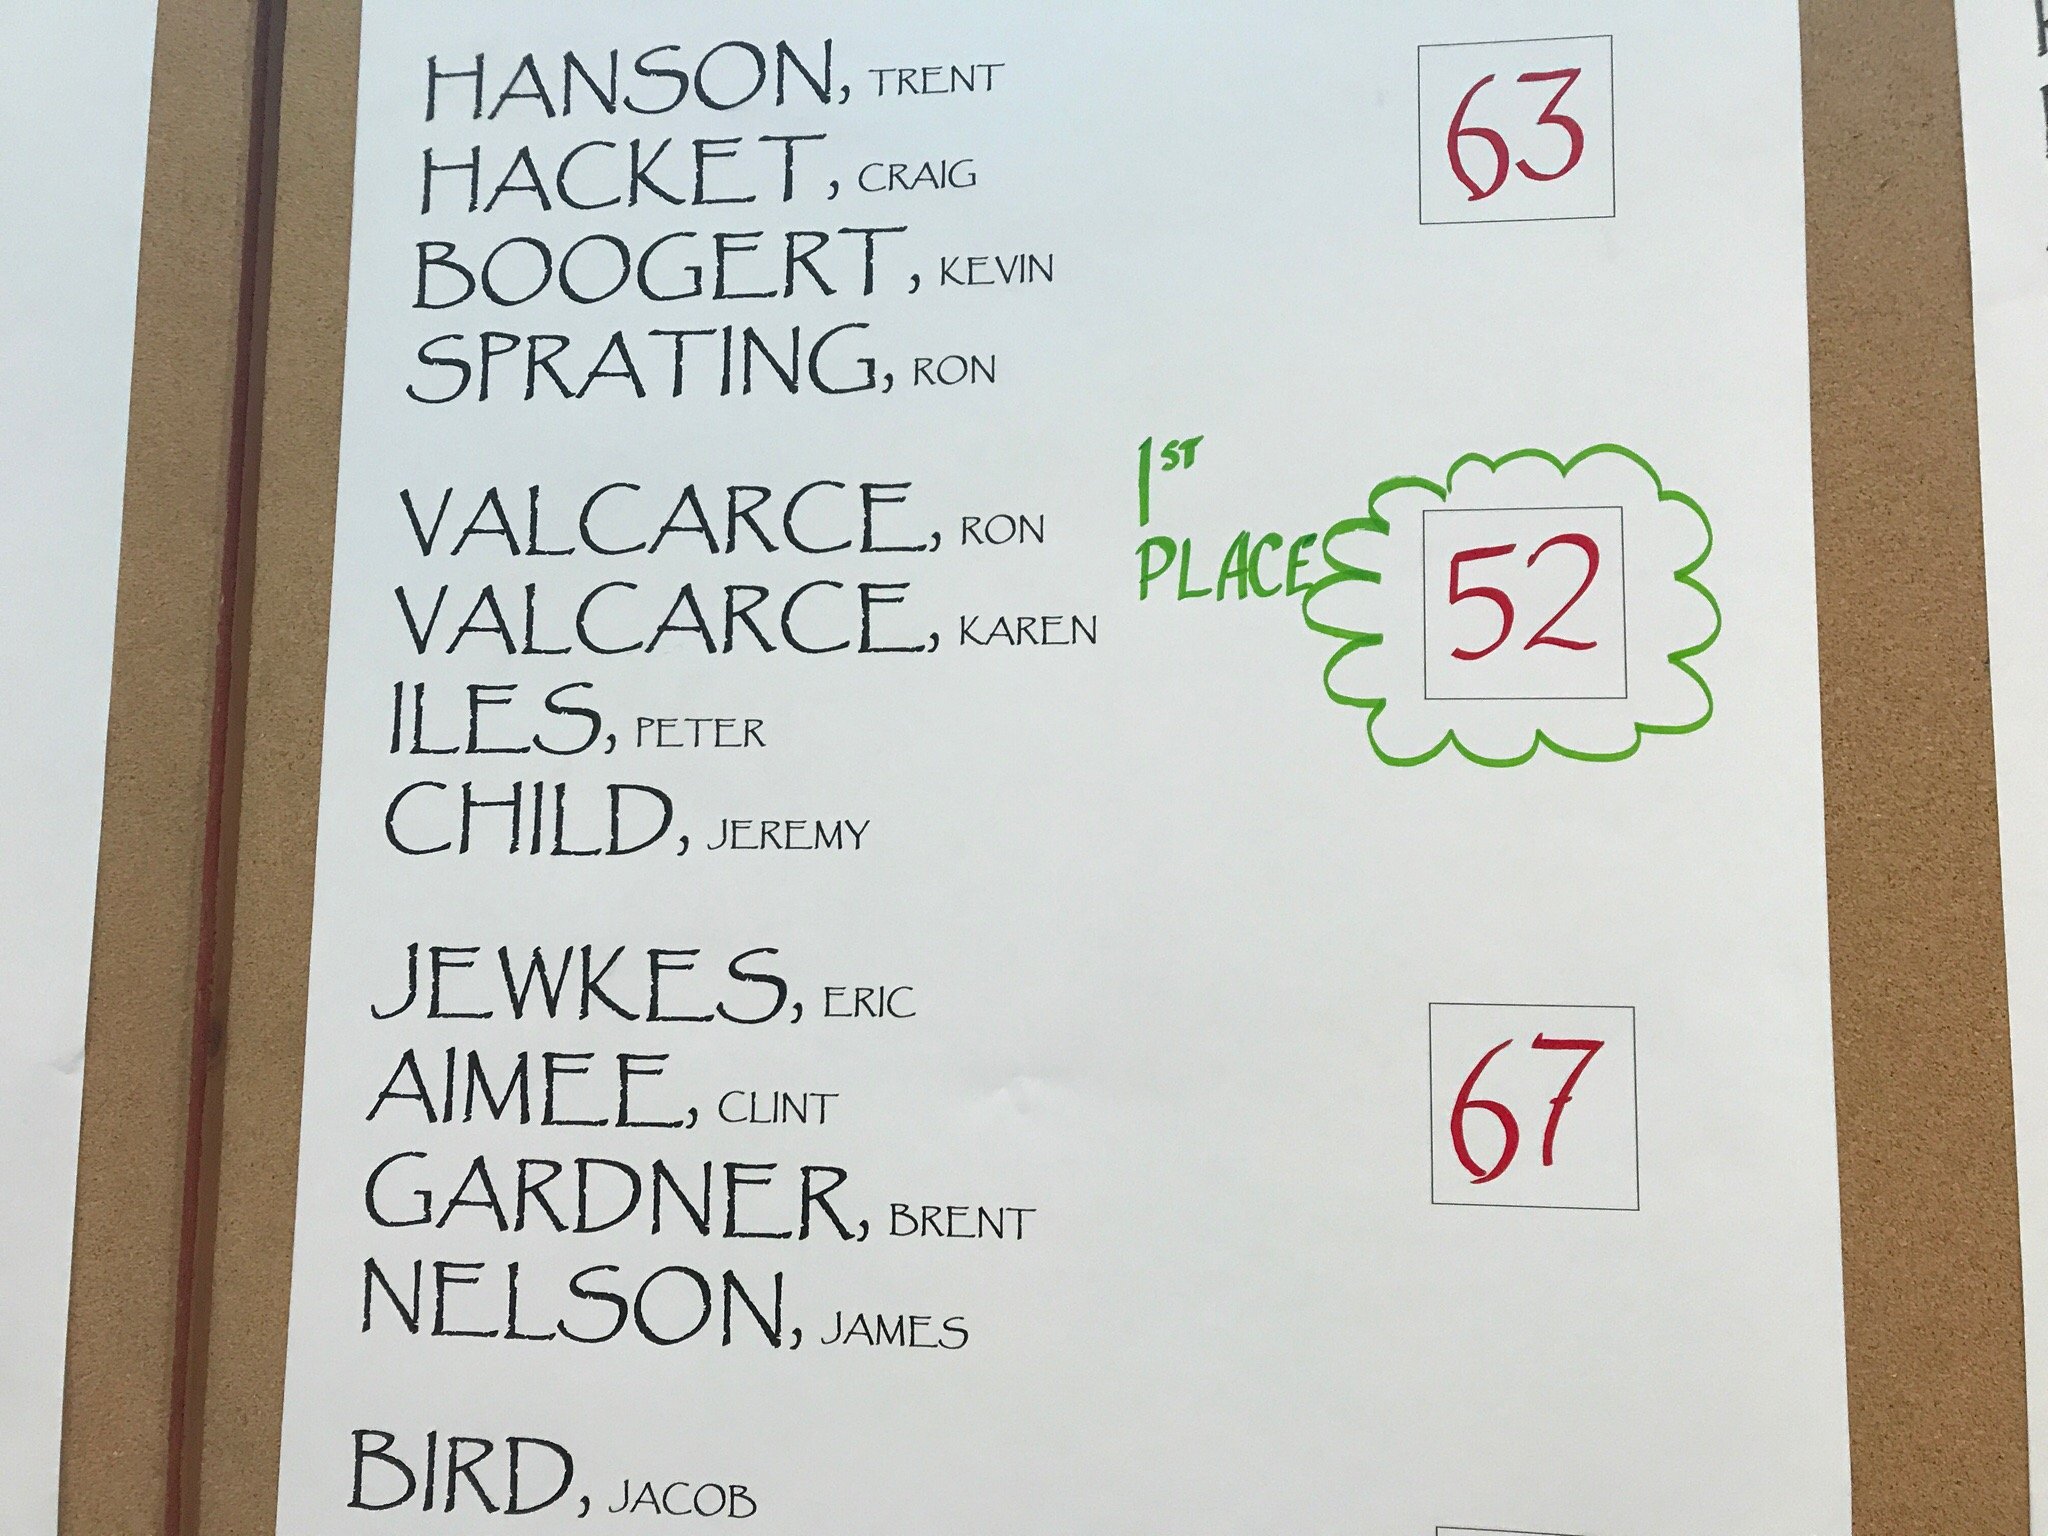 HANSON, TRENT
63
HACKET, CRAIG
BOOGERT, KEVIN
SPRATING, RON
1ST
PLACE
VALCARCE, RON
52
VALCARCE, KAREN
ILES, PETER
CHILD, JEREMY
JEWKES, ERIC
67
AIMEE, CLINT
GARDNER, BRENT
NELSON, JAMES
BIRD, JACOB